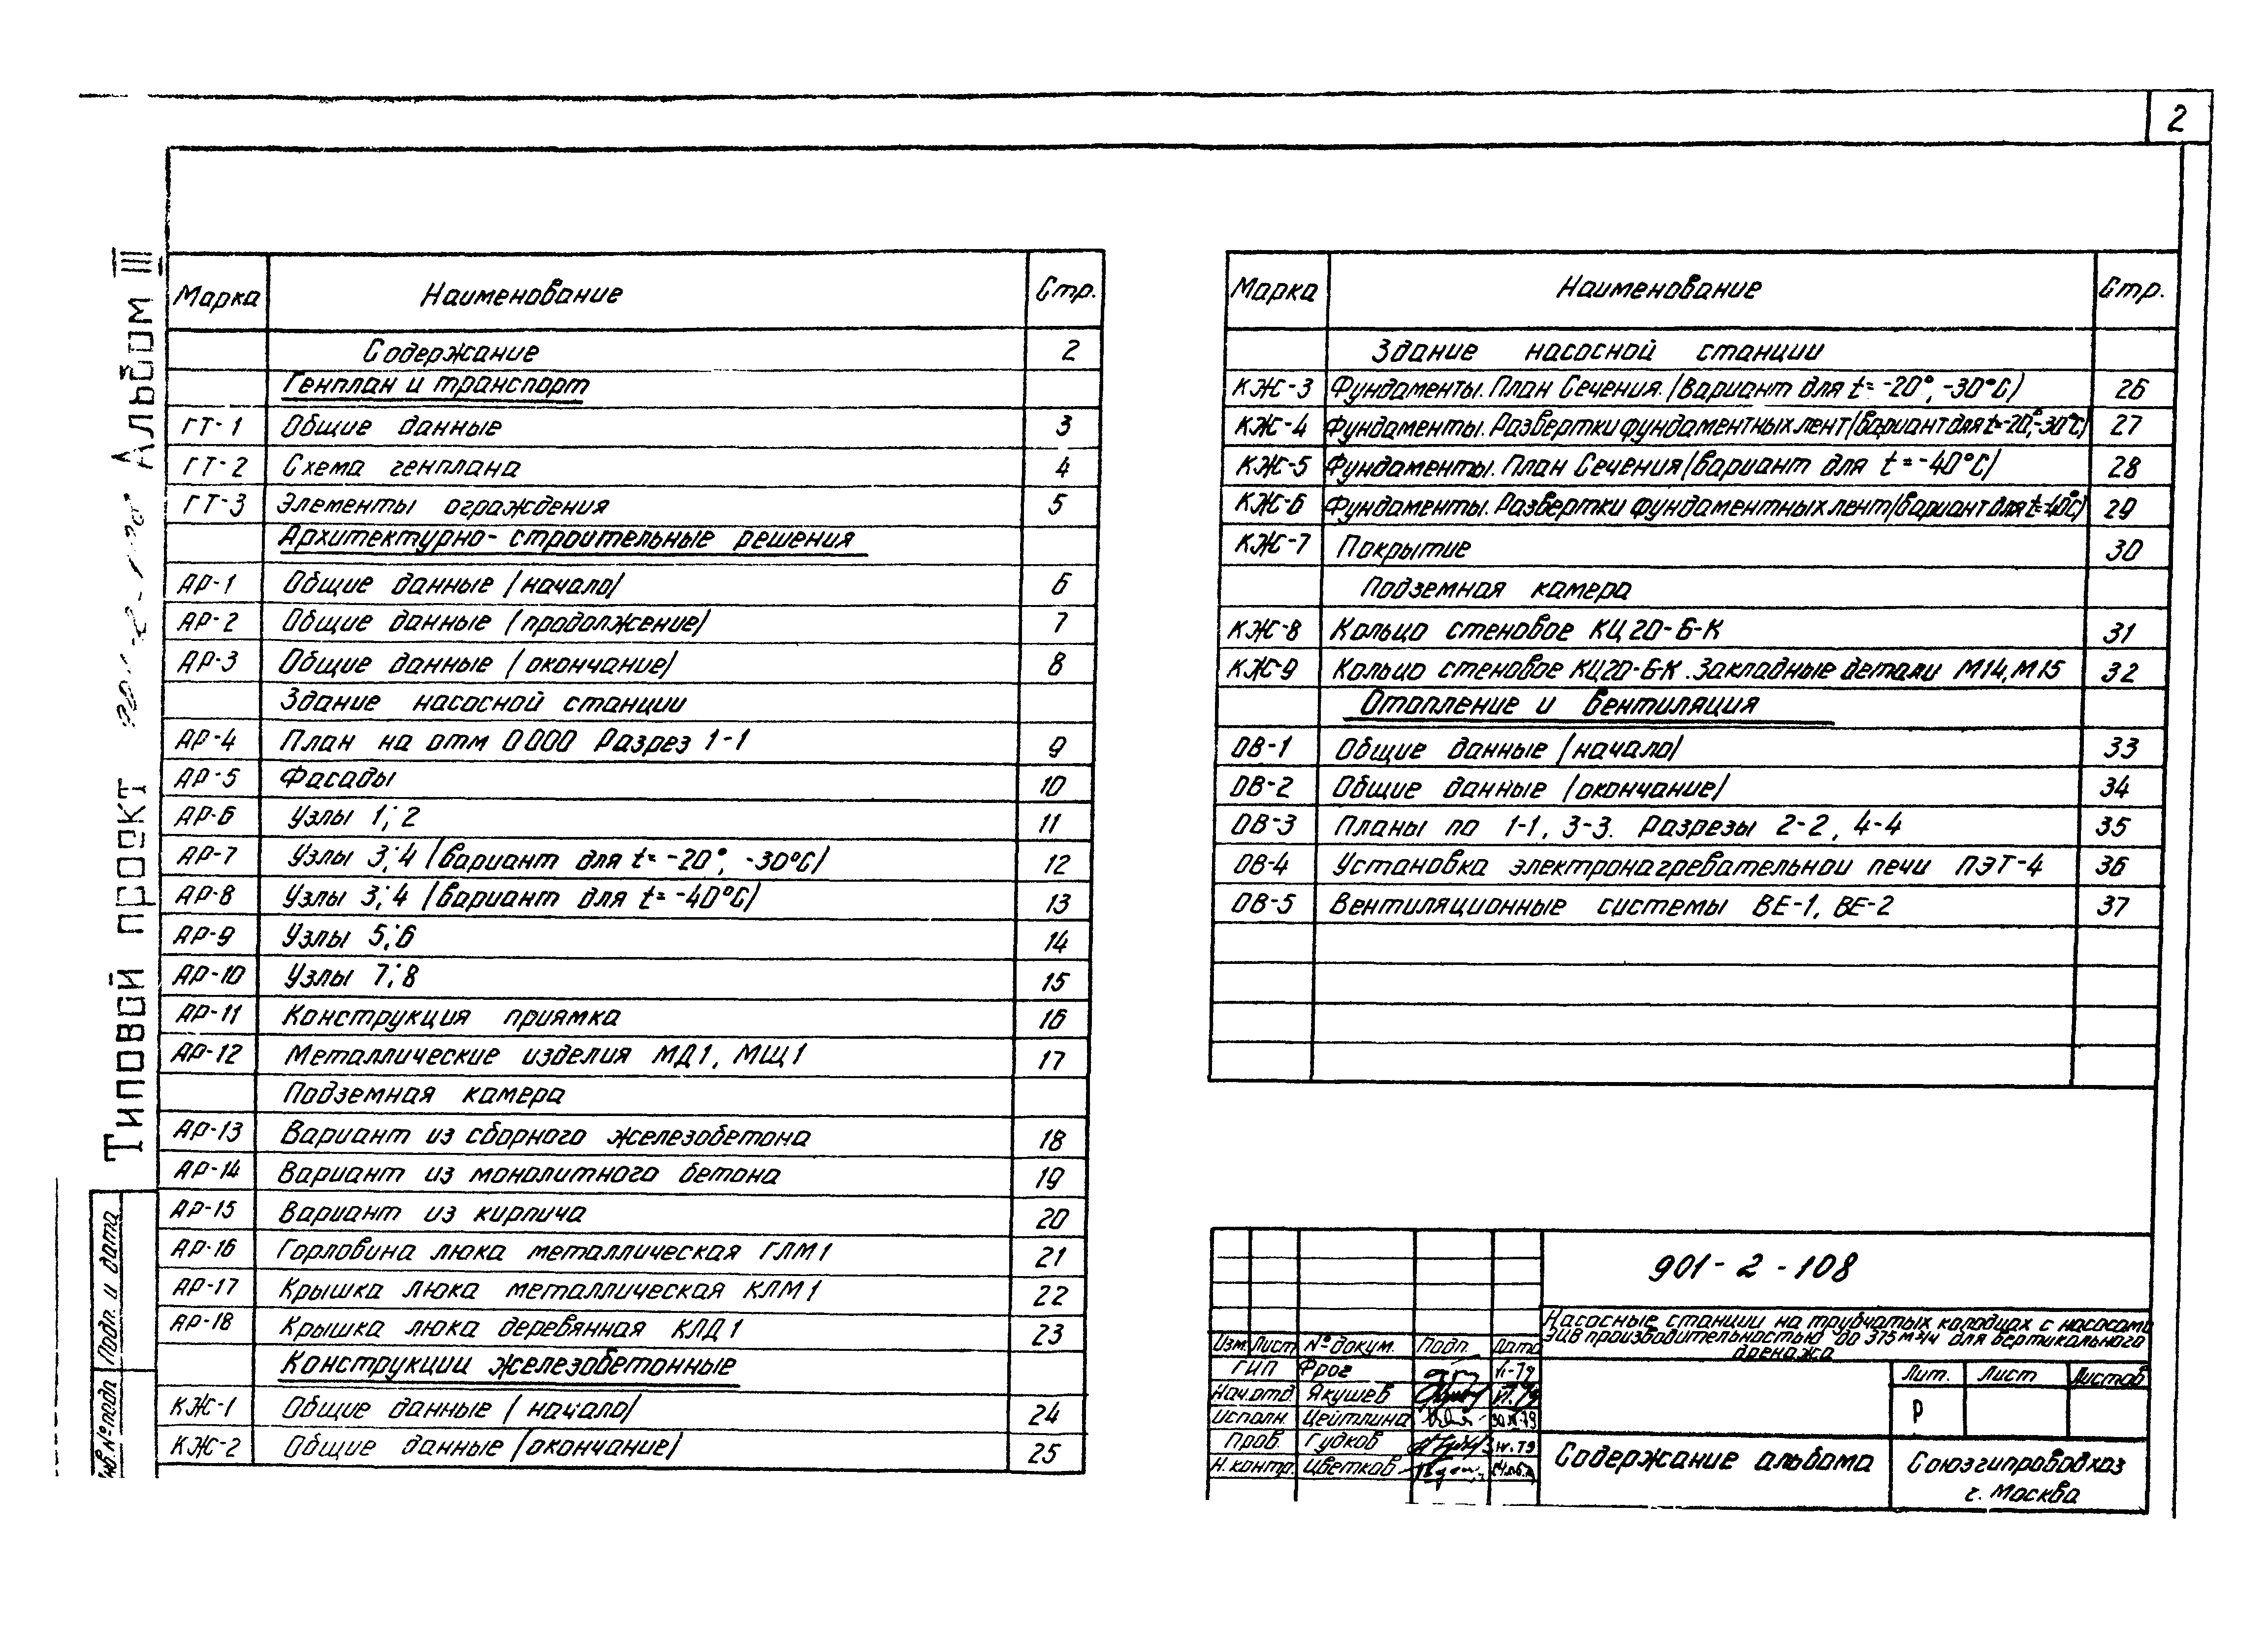 2
Типовой проект 901-2-108 Альбом III
Марка Наименование Стр.
Содержание 2
Генплан и транспорт
ГТ-1 Общие данные 3
ГТ-2 Схема генплана 4
ГТ-3 Элементы ограждения 5
Архитектурно-строительные решения
АР-1 Общие данные /начало/ 6
АР-2 Общие данные /продолжение/ 7
АР-3 Общие данные /окончание/ 8
Здание насосной станции
АР-4 План на отм 0000 Разрез 1-1 9
АР-5 Фасады 10
АР-6 Узлы 1; 2 11
АР-7 Узлы 3; 4 /вариант для t= -20°, -30°С/ 12
АР-8 Узлы 3; 4 /вариант для t= -40°С/ 13
АР-9 Узлы 5; 6 14
АР-10 Узлы 7; 8 15
АР-11 Конструкция приямка 16
АР-12 Металлические изделия МД1, МЩ1 17
Подземная камера
АР-13 Вариант из сборного железобетона 18
АР-14 Вариант из монолитного бетона 19
АР-15 Вариант из кирпича 20
АР-16 Горловина люка металлическая ГЛМ1 21
АР-17 Крышка люка металлическая КЛМ1 22
АР-18 Крышка люка деревянная КЛД1 23
Конструкции железобетонные
КЖ-1 Общие данные /начало/ 24
КЖ-2 Общие данные /окончание/ 25
Марка Наименование Стр.
Здание насосной станции
КЖ-3 Фундаменты. План Сечения. /Вариант для t= -20°, -30°С/ 26
КЖ-4 Фундаменты. Развертки фундаментных лент /вариант для t=-20°,-30°С/ 27
КЖ-5 Фундаменты. План Сечения /вариант для t=-40°С/ 28
КЖ-6 Фундаменты. Развертки фундаментных лент /вариант для t=-40°С/ 29
КЖ-7 Покрытие 30
Подземная камера
КЖ-8 Кольцо стеновое КЦ20-6-К 31
КЖ-9 Кольцо стеновое КЦ20-6-К. Закладные детали М14, М15 32
Отопление и вентиляция
ОВ-1 Общие данные /начало/ 33
ОВ-2 Общие данные /окончание/ 34
ОВ-3 Планы по 1-1, 3-3. Разрезы 2-2, 4-4 35
ОВ-4 Установка электронагревательной печи ПЭТ-4 36
ОВ-5 Вентиляционные системы ВЕ-1, ВЕ-2 37
901-2-108
Насосные станции на трубчатых колодцах с насосами
ЭЦВ производительностью до 375 м³/ч для вертикального
дренажа
Изм. Лист № докум. Подп. Дата
ГИП Фрог VI-79
Нач.отд Якушев VI.79
Исполн. Цейтлина
Пров. Гудков
Н.контр. Цветков
Лит. Лист Листов
Р
Содержание альбома
Союзгипроводхоз
г. Москва
Подп. и дата
Инв.№ подл